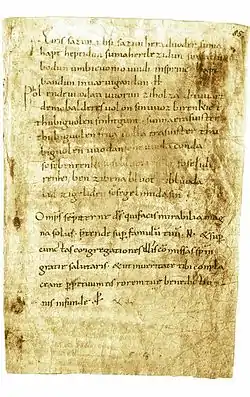 Eiris sazun idisi sazun hera duoder suma
hapt heptidun sumaherilezidun sumaclu
bodun umbicuonio uuidi insprinc hapt
bandun inuar uigandun · H ·
Phol endeuuodan uuorun ziholza du uuart
demobalderes uolon sinuuoz birenkict
thubiguolen sinhtgunt · sunnaerasuister
thubiguolen friia uolla erasuister thu
biguolen uuodan sohe uuolaconda
sosebenrenki soselidi
renki ben zibena bluot zibluoda
lid zigeliden sosegelimida sin
Omps sempiterne ds qui facis mirabilia mag
na solus · ptende sup famulū tuū · N · & sup
cunctas congregationes illis comissas spm
gratie salutaris · & ut inueritate tibi compla
ceant ppetuum eis rorem tuę benedictio
nis infunde · P
85